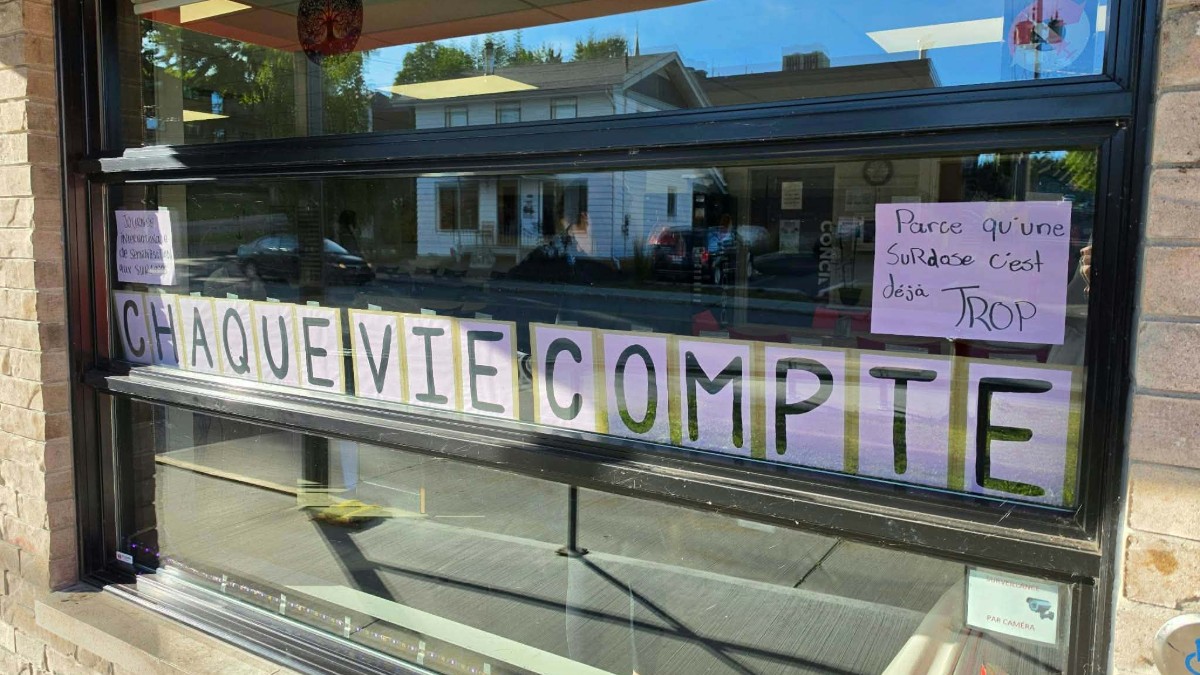 Journée
internationale
de sensibilisation
aux surdoses
CHAQUE VIE COMPTE
Parce qu'une
SuRdose c'est
déjà TROP
SURVEILLANCE
PAR CAMÉRA